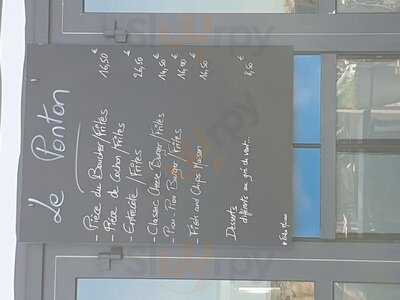 Le Ponton
- Pièce du Boucher/Frites 16,50 €
- Pièce de Cochon/Frites
- Entrecôte/Frites 26,50 €
- Classic Cheese Burger/Frites 16,50 €
- Burger/Frites 16,90 €
- Fish and Chips Maison 16,50 €
Desserts 8,50 €
différents au gré du vent...